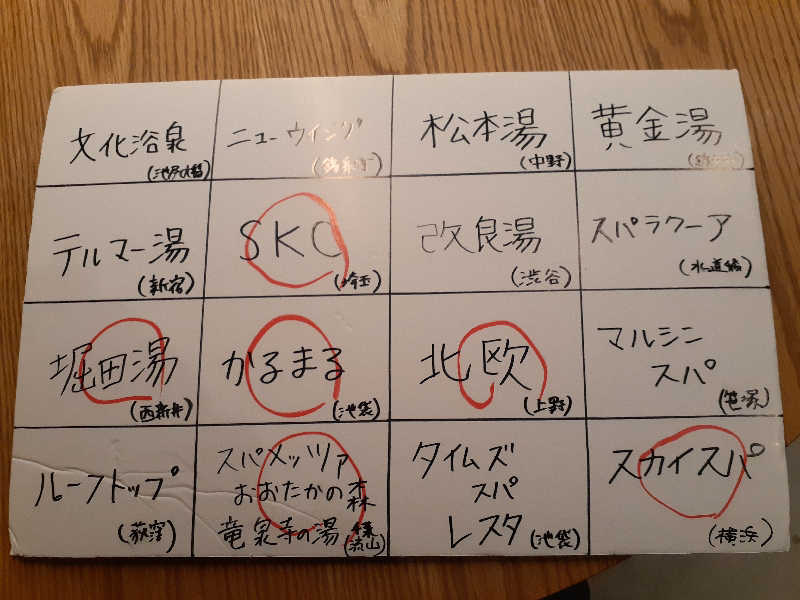 文化浴泉
(池尻大橋)
ニューウイング
(錦糸町)
松本湯
(中野)
黄金湯
(錦糸町)
テルマー湯
(新宿)
SKC
(埼玉)
改良湯
(渋谷)
スパラクーア
(水道橋)
堀田湯
(西新井)
かるまる
(池袋)
北欧
(上野)
マルシン
スパ
(笹塚)
ルーフトップ
(荻窪)
スパメッツァ
おおたかの森
竜泉寺の湯
流山)
タイムズ
スパ
レスタ(池袋)
スカイスパ
(横浜)